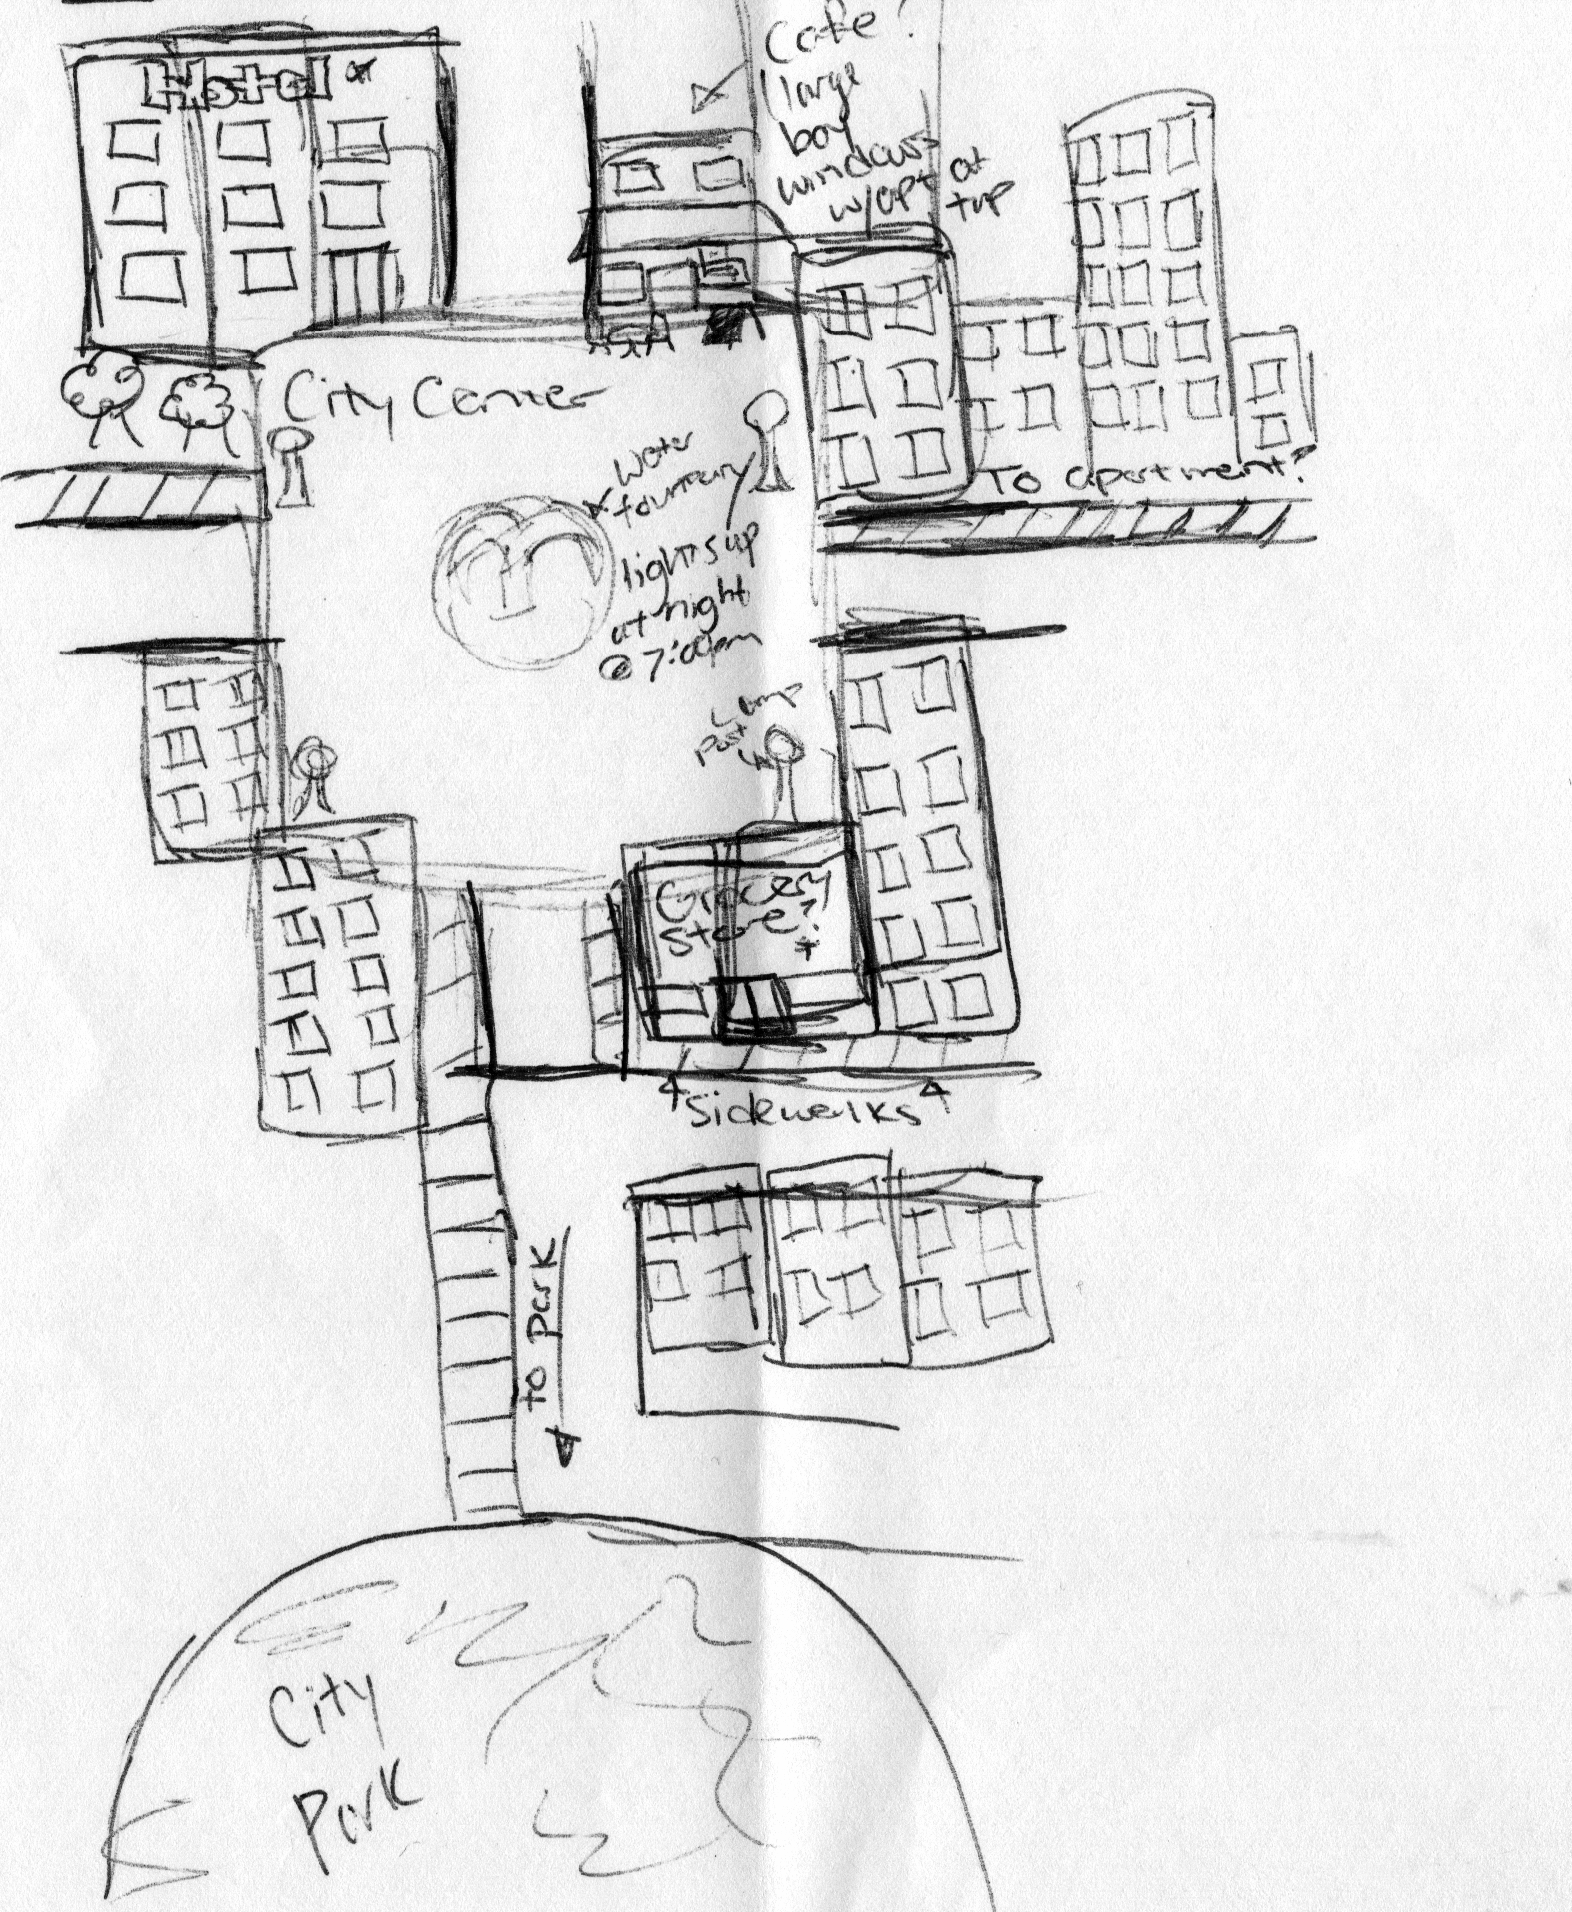 Hotel *
Cafe?
large
bay
windows
w/apt at
top
City Center
Water
fountain
lights up
at night
@ 7:00pm
To apartment?
Lamp
Post
Grocery
Store?
*
Sidewalks
to park
City
Park